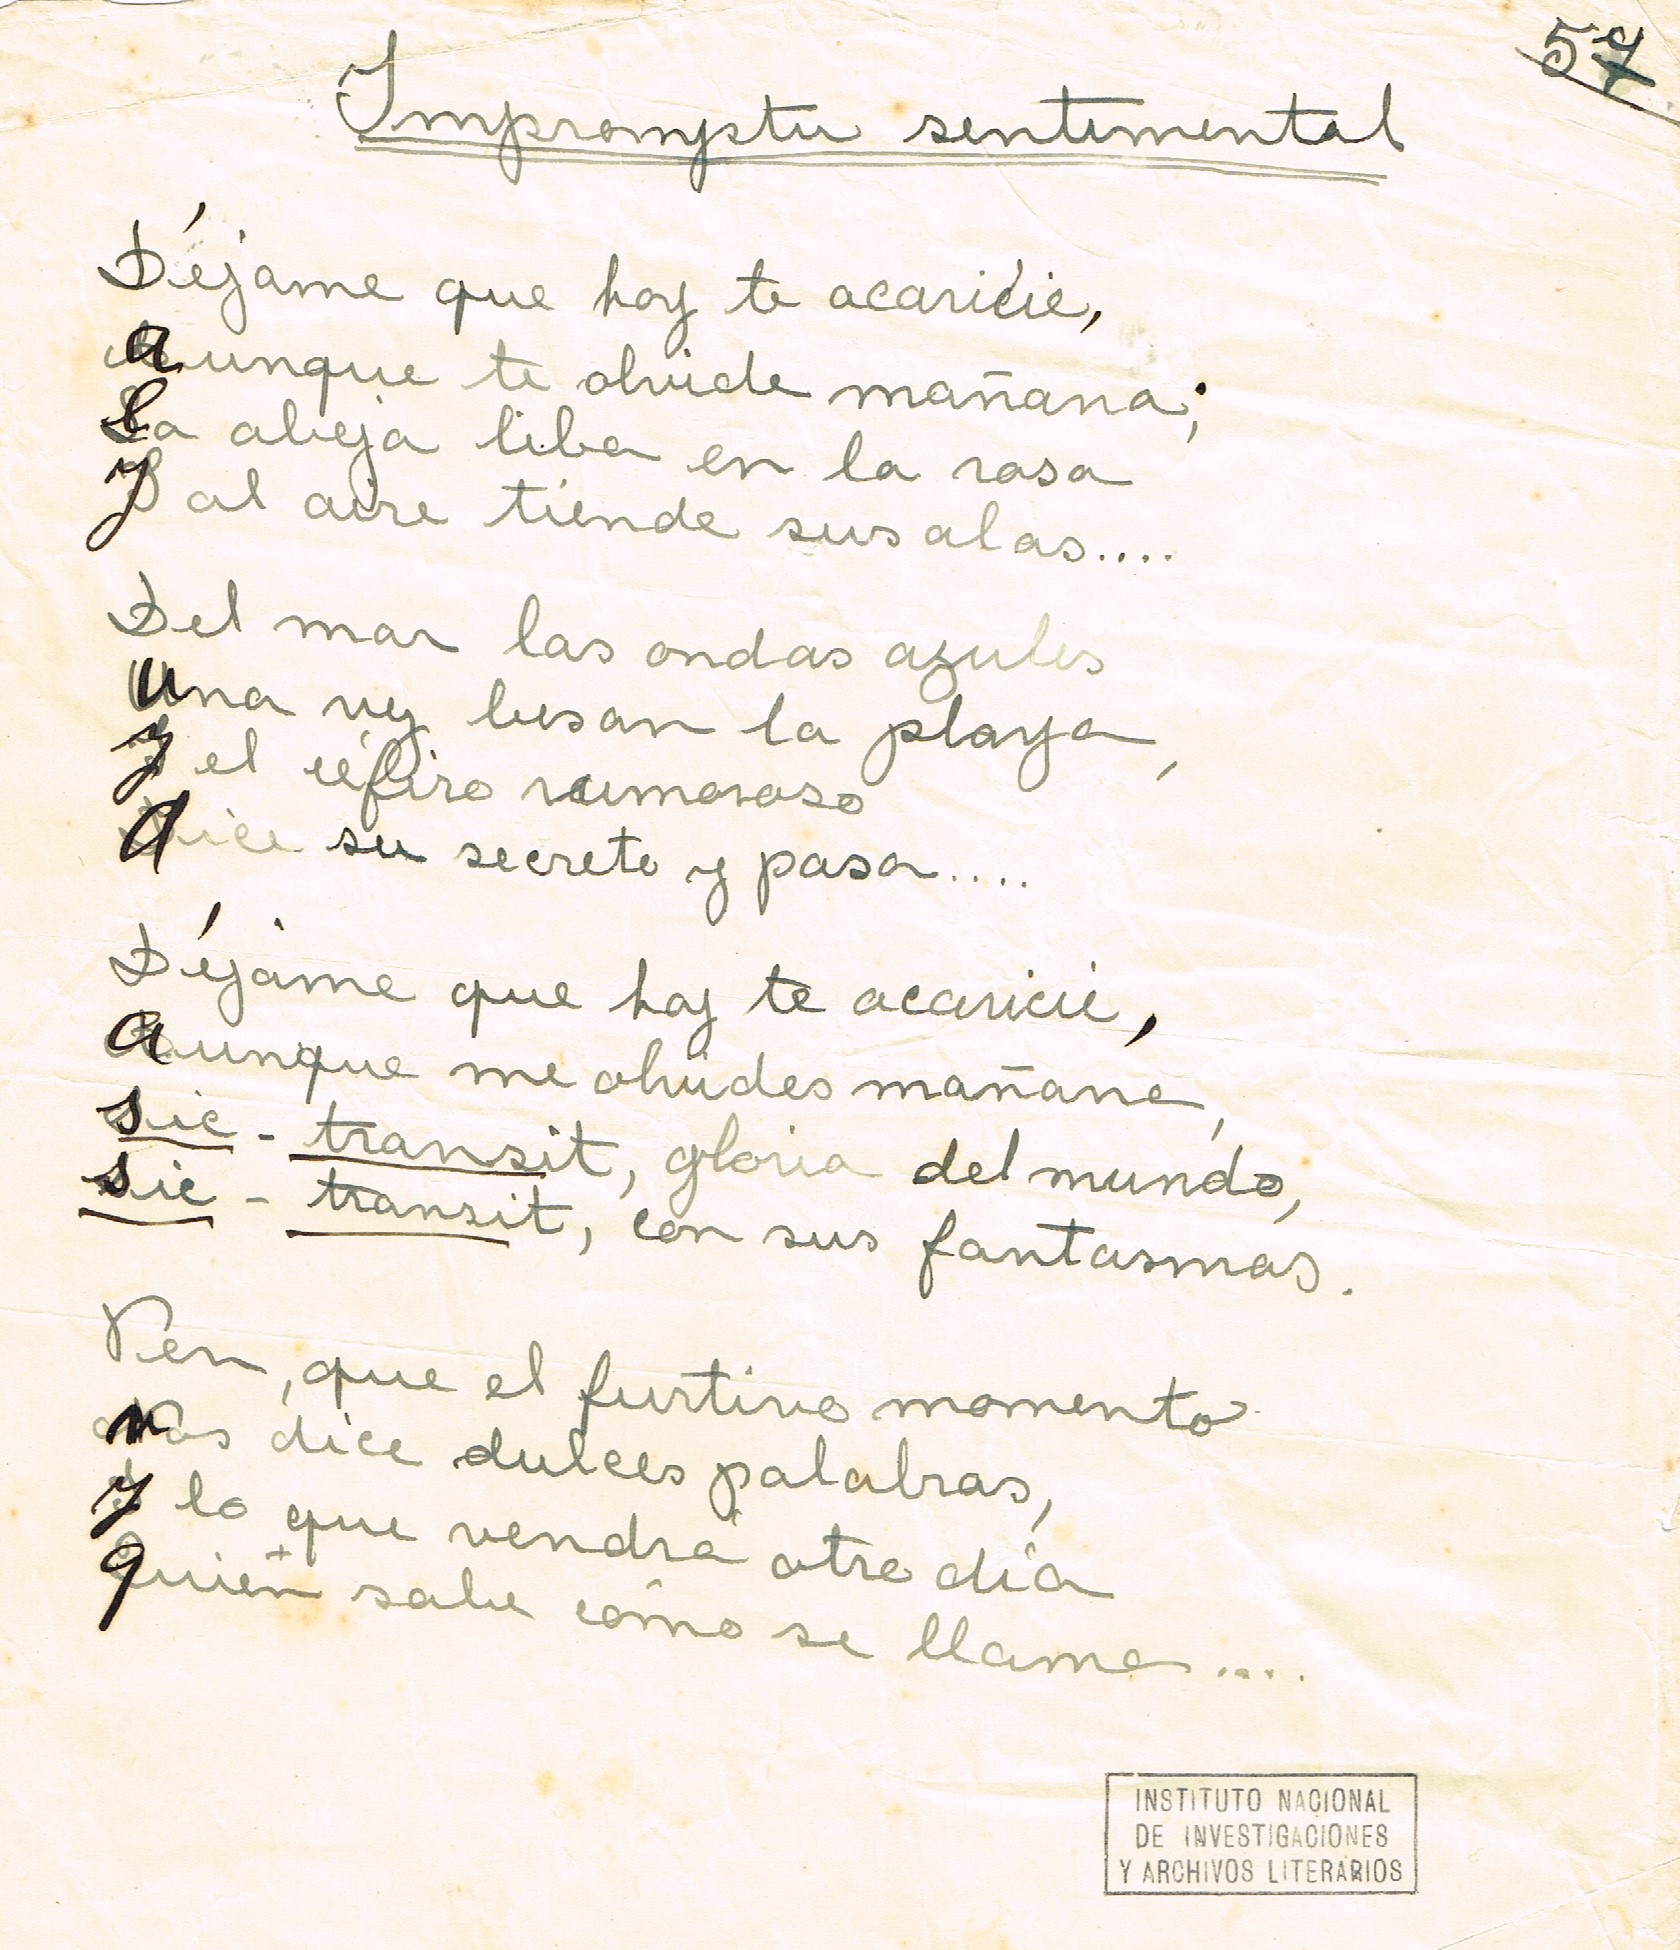 57
Impromptu sentimental
Déjame que hoy te acaricie,
aunque te olvide mañana;
la abeja liba en la rosa
y al aire tiende sus alas....
Del mar las ondas azules
una vez besan la playa,
y el céfiro rumoroso
dice su secreto y pasa....
Déjame que hoy te acaricie,
aunque me olvides mañana,
sic - transit, gloria del mundo,
sic - transit, con sus fantasmas.
Ven, que el furtivo momento
nos dice dulces palabras,
y lo que vendrá otro día
quién sabe cómo se llama....
INSTITUTO NACIONAL
DE INVESTIGACIONES
Y ARCHIVOS LITERARIOS